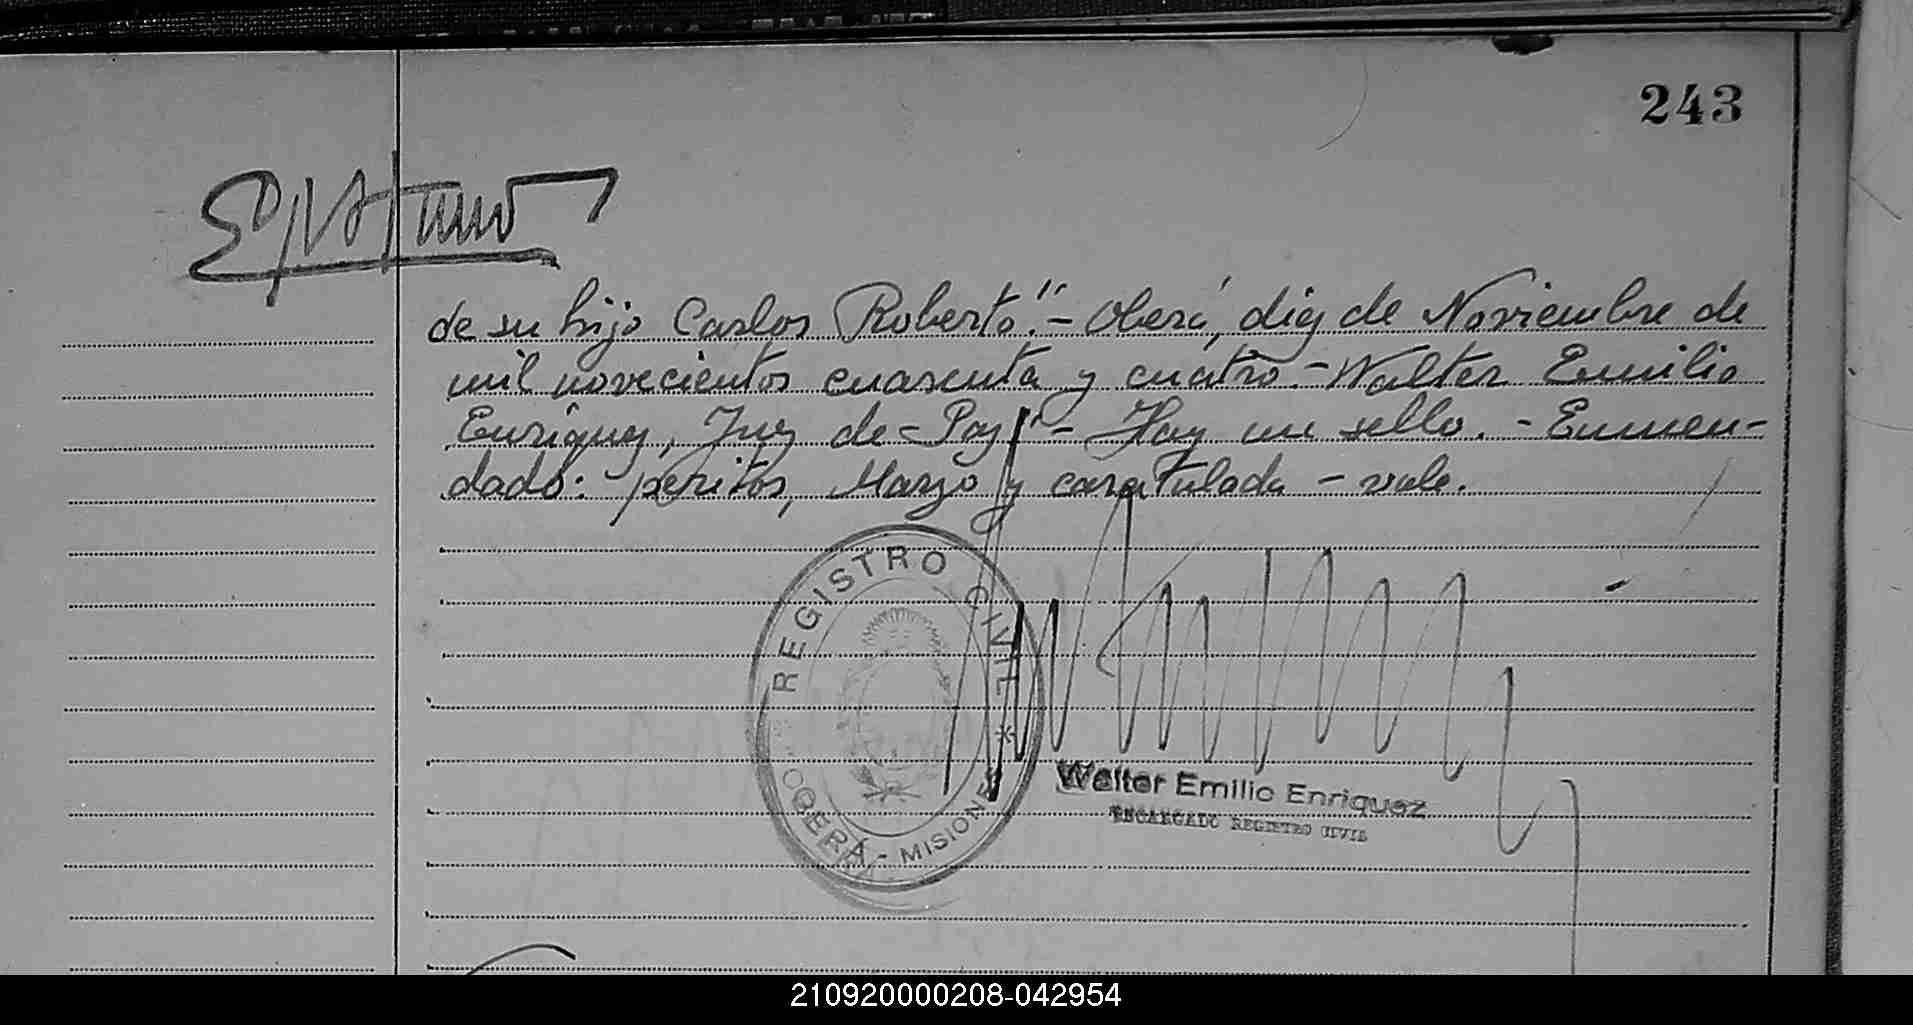 243
de su hijo Carlos Roberto".- Oberá, diez de Noviembre de
mil novecientos cuarenta y cuatro.- Walter Emilio
Enriquez, Juez de Paz"- Hay un sello. - Enmen-
dado: peritos, Marzo y caratulada - vale.
REGISTRO CIVIL
OBERÁ - MISIONES
Walter Emilio Enriquez
ENCARGADO REGISTRO CIVIL
210920000208-042954